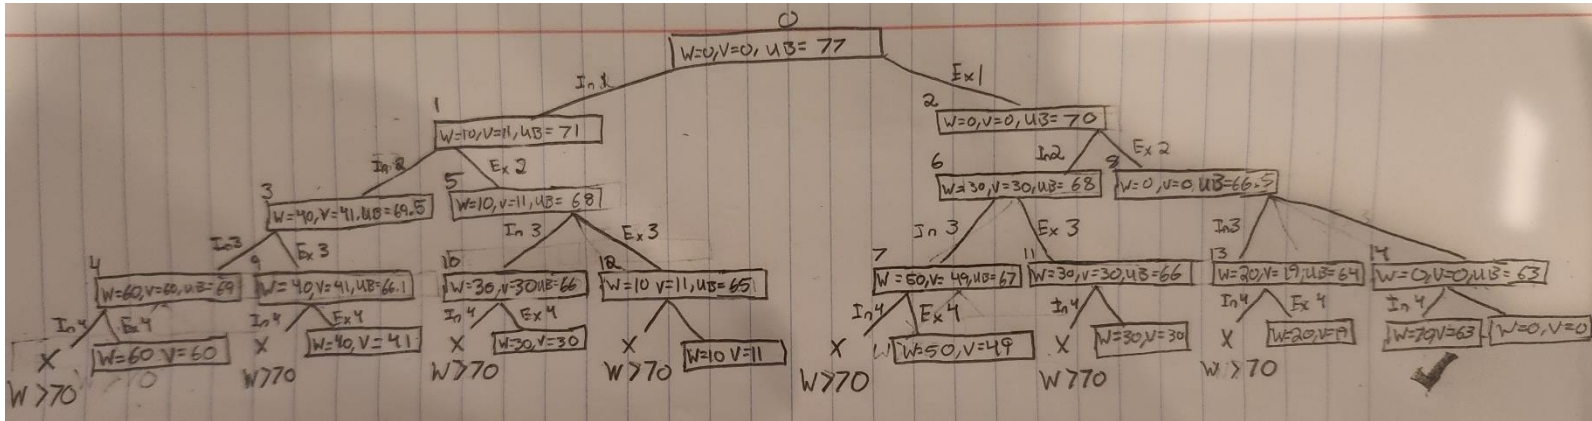 0
W=0,V=0, UB= 77
In 1
Ex1
1
W=10,V=11,UB= 71
2
W=0,V=0,UB= 70
In 2
Ex 2
In2
Ex 2
3
W=40,V=41,UB=69.5
5
W=10,V=11,UB= 68
6
W=30,V=30,UB= 68
8
W=0,V=0,UB=66.5
In3
Ex 3
In 3
Ex 3
In 3
Ex 3
In3
4
W=60,V=60,UB=69
9
W=40,V=41,UB=66.1
10
W=30,V=30UB=66
12
W=10 V=11,UB=65
7
W=50,V=49,UB=67
11
W=30,V=30,UB=66
13
W=20,V=19,UB=64
14
W=0,V=0,UB=63
In4
Ex4
In4
Ex4
In4
Ex4
In4
Ex4
In4
Ex4
In4
Ex4
In4
X
W=60 V=60
X
W=40,V=41
X
W=30,V=30
X
W=10 V=11
X
W=50,V=49
X
W=30,V=30
X
W=20,V=19
W=70,V=63
W=0,V=0
W>70
W>70
W>70
W>70
W>70
W>70
W>70